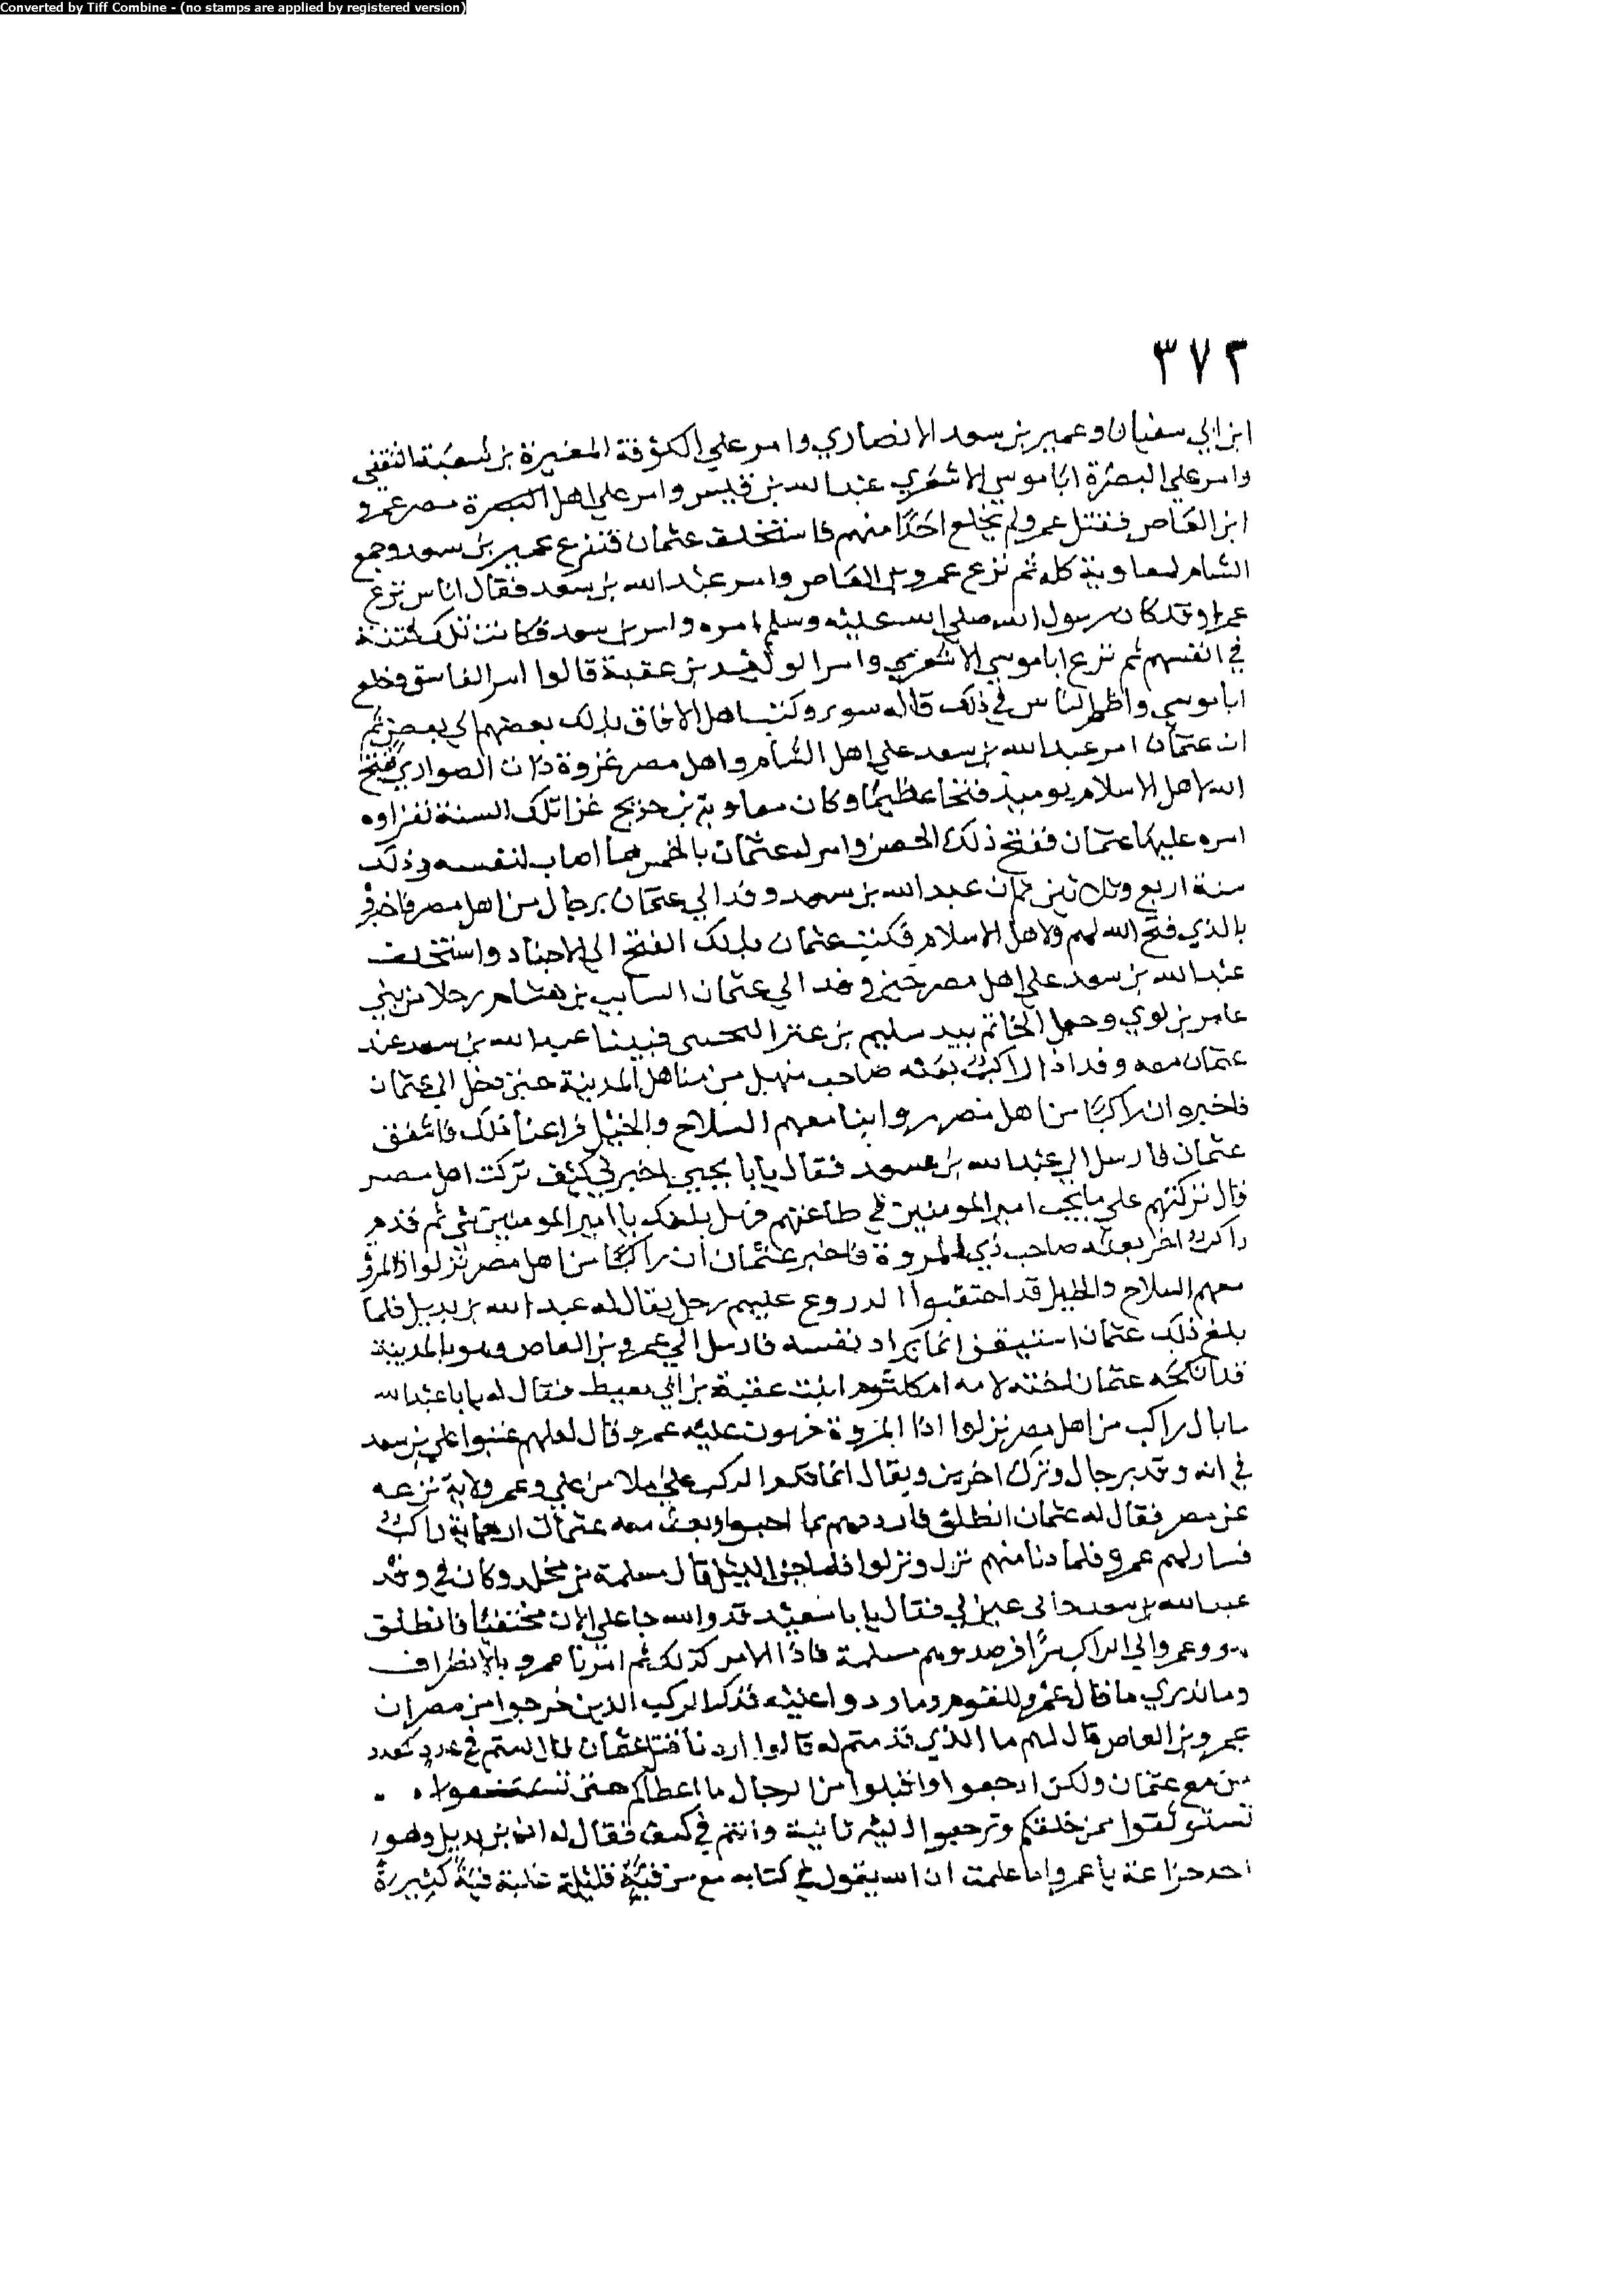 Converted by Tiff Combine - (no stamps are applied by registered version)
٣٧٢
ابن ابي سفيان وعمير بن سعد الانصاري وامر علي الكوفة المغيرة بن شعبة الثقفي
وامر علي البصرة ابا موسي الاشعري عبد الله بن قيس وامر علي اهل البصرة مصر عمرو
ابن العاص فقتل عمر ولم يخلع احدا منهم فاستخلف عثمان فنزع عمير بن سعد وجمع
الشام لمعاوية كله ثم نزع عمرو بن العاص وامر عبد الله بن سعد فقال اناس نزع
عمرا وقد كان رسول الله صلي الله عليه وسلم امره وامر بن سعد فكانت تلك فتنة
في انفسهم ثم نزع ابا موسي الاشعري وامر الوليد بن عقبة قالوا امر الفاسق وخلع
ابا موسي واظهر الناس في ذلك قاله سوء وكتب اهل الافاق بذلك بعضهم الي بعض ثم
ان عثمان امر عبد الله بن سعد علي اهل الشام واهل مصر غزوة ذات الصواري ففتح
الله لاهل الاسلام يوميذ فتحا عظيما وكان معاوية بن حزيج غزا تلك السنة لغزاوه
امره عليها عثمان ففتح ذلك الحصن وامر له عثمان بالخمس مما اصاب لنفسه وذلك
سنة اربع وثلاثين ثم ان عبد الله بن سعد وفد الي عثمان برجال من اهل مصر فاخبرو
بالذي فتح الله لهم ولاهل الاسلام فكتب عثمان بذلك الفتح الي الاجناد واستخلف
عبد الله بن سعد علي اهل مصر حين وفد الي عثمان السايب بن هشام رجلا من بني
عامر بن لوي وحمل الخاتم بيد سليم بن عنز فبينا عبد الله بن سعد عند
عثمان معه وفد اذا راكب بعثه صاحب منهل من مناهل المدينة حين دخل الي عثمان
فاخبره ان راكبا من اهل مصر معهم السلاح والخيل ذلك فاشفق
عثمان فارسل الي عبد الله بن سعد فقال يا با يحيي اخبرني كيف تركت اهل مصر
قال تركتهم علي ما يحب امير المومنين في طاعتهم فهل بلغك يا امير المومنين شي ثم قدم
راكب اخر بعثه صاحب ذي المروة فاخبر عثمان ان راكبا من اهل مصر نزلوا ذا المرو
معهم السلاح والخيل قد احتقبوا الدروع عليهم رجل يقال له عبد الله بن بديل فلما
بلغ ذلك عثمان استيقن انما يراد نفسه فارسل الي عمرو بن العاص وهو بالمدينة
قد انكحه عثمان لخته لامه ام كلثوم ابنت عقبة بن ابي معيط فقال له يا با عبد الله
ما بال راكب من اهل مصر نزلوا اذا المروة فهون عليه عمرو قال لعلهم عتبوا علي بن سعد
في انه وفد برجال وترك اخرين ويقال انما الركب علي ملا من علي وعمرو لاية نزعه
عن مصر فقال له عثمان انطلق فارددهم بما احبوا وبعث معه عثمان اربعماية راكب
فسار لهم عمرو فلما دنا منهم نزل ونزلوا فلما جن الليل قال مسلمة بن مخلد وكان في وفد
عبد الله بن سعد فقال يا با سعيد قد والله جا علي الان مختفيا فانطلق
هو وعمرو الي الراكب سرا فرصدوهم مسلمة فاذا الامر كذلك ثم امرنا عمرو بالانظراف
وما ندري ما قال عمرو للقوم وما ردوا عليه فذكر الركب الذين خرجوا من مصر ان
عمرو بن العاص قال لهم ما الذي قدمتم له قالوا اردنا قتل عثمان قال لستم في عدد كعدد
من مع عثمان ولكن ارجعوا واقبلوا من الرجال ما اعطاكم حتي
تستوثقوا ممن خلفكم وترجعوا اليه ثانية وانتم في كسف فقال له ابن بديل وهو
احد خزاعة يا عمرو اما علمت ان الله يقول في كتابه مع من فية قليلة غلبة فية كثيرة